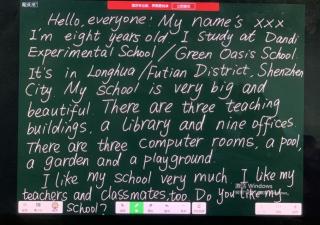 Hello, everyone! My name's xxx
I'm eight years old I study at Dandi
Experimental School / Green Oasis School.
It's in Longhua / Futian District, Shenzhen
City. My school is very big and
beautiful. There are three teaching
buildings, a library and nine offices.
There are three computer rooms, a pool,
a garden and a playground.
I like my school very much. I like my
teachers and classmates, too. Do you like my
school?
Windows